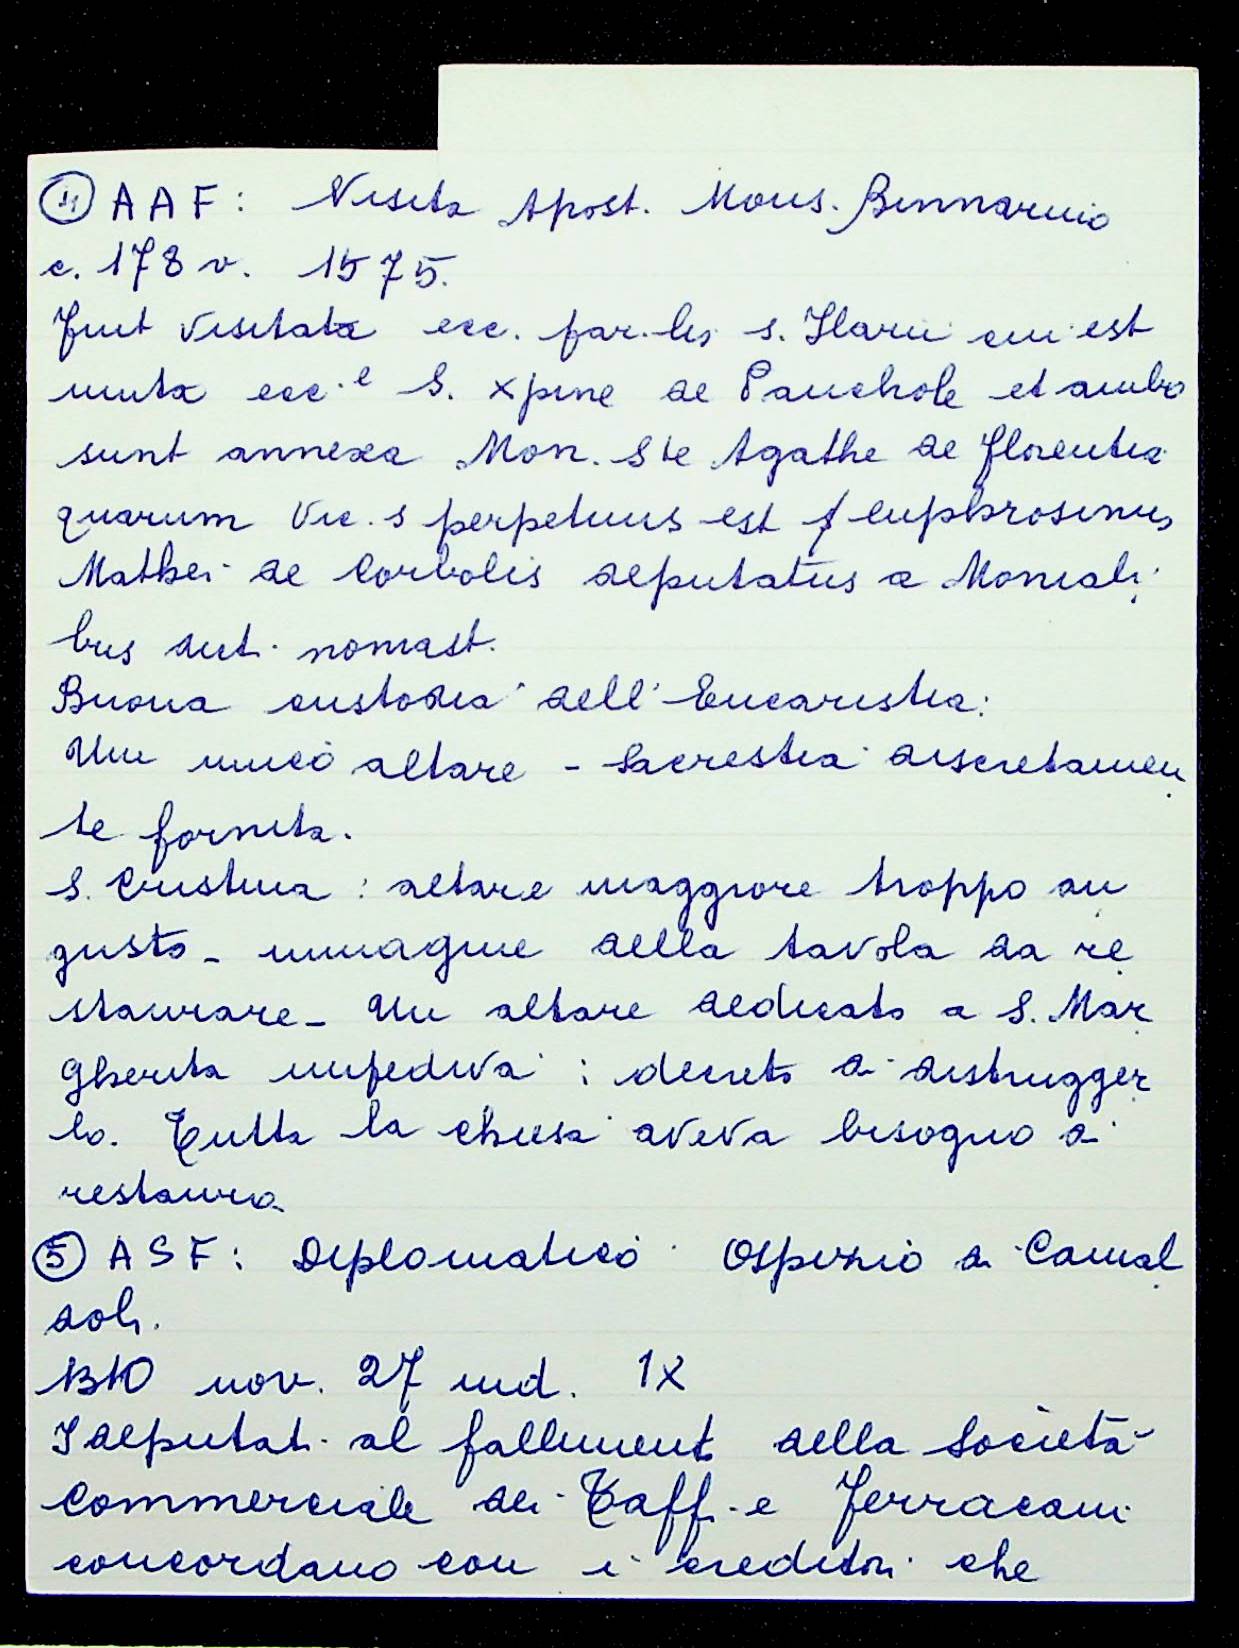 ④ AAF: Visita Apost. Mons. Binnarinio
c. 178 v. 1575.
Fuit visitata ecc. par.lis s. Ilarii cui est
unita ecc.e S. Xpine de Panchole et ambo
sunt annexa Mon. Ste Agathe de florentia
quarum Vic.s perpetuus est f euphrosinus
Mathei de Corbolis deputatus a Moniali
bus dict. nomast.
Buona custodia dell'Eucaristia:
Un unico altare - sacrestia discretamen
te fornita.
S. Cristina: altare maggiore troppo an
gusto - immagine della tavola da re
staurare - Un altare dedicato a S. Mar
gherita impediva: decreto di distrugger
lo. Tutta la chiesa aveva bisogno di
restauro.
⑤ ASF: Diplomatico Ospizio di Camal
doli.
1310 nov. 27 ind. IX
I deputati al fallimento della Società
Commerciale dei Taffi e Ferracani
concordano con i creditori che